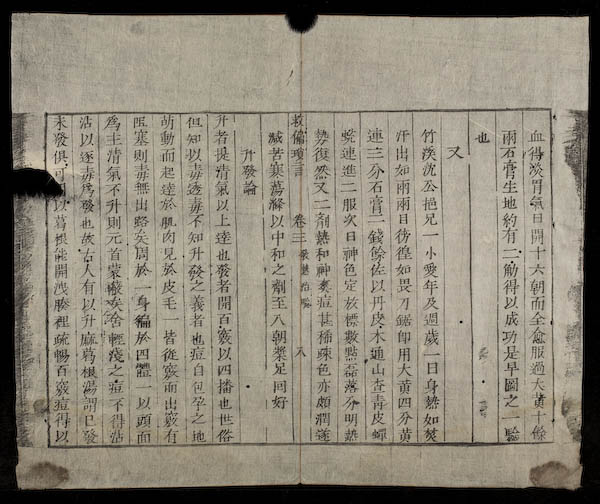 血得淡胃氣日開十六朝而全愈服過大黃十餘
兩石膏生地約有二觔得以成功是早圖之一驗
也
又
竹溪沈公挹兄一小愛年及週歲一日身熱如焚
汗出如雨兩目徬徨如畏刀鋸卽用大黃四分黃
連三分石膏二錢餘佐以丹皮木通山查青皮蟬
蛻連進二服次日神色定放標數點磊落分明熱
勢復然又二劑熱和神爽痘甚稀疎色亦頗潤遂
減苦寒蕩滌以中和之劑至八朝漿足回好
救偏瑣言 卷三 八
升發論
升者提清氣以上達也發者開百竅以四播也世俗
但知以毒透毒不知升發之義者也痘自包孕之地
萌動而起達於肌肉見於皮毛一皆從竅而出竅有
阻塞則毒無出路矣周於一身徧於四體一以頭面
爲主清氣不升則元首蒙蔽矣舍輕淺之痘不得沾
沾以逐毒爲發也故古人有以升麻葛根湯謂巳發
未發俱可以葛根能開洩腠理疏暢百竅痘得以